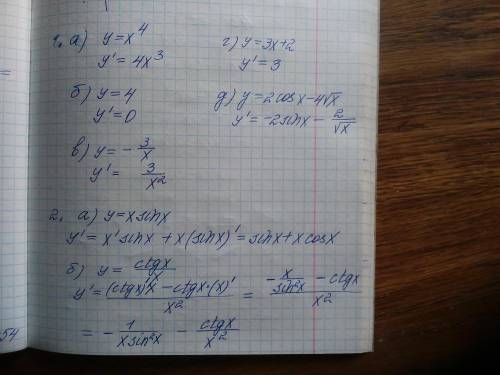 1. а) y=x⁴ г) y=3x+2
y'=4x³ y'=3
б) y=4 д) y=2cosx-4√x
y'=0 y'=-2sinx-2/√x
в) y=-3/x
y'= 3/x²
2. а) y=xsinx
y'=x'sinx+x(sinx)'=sinx+xcosx
б) y=ctgx/x
y'=((ctgx)'x-ctgx·(x)')/x² = (-x/sin²x-ctgx)/x²
=-1/(xsin²x)-ctgx/x²
54